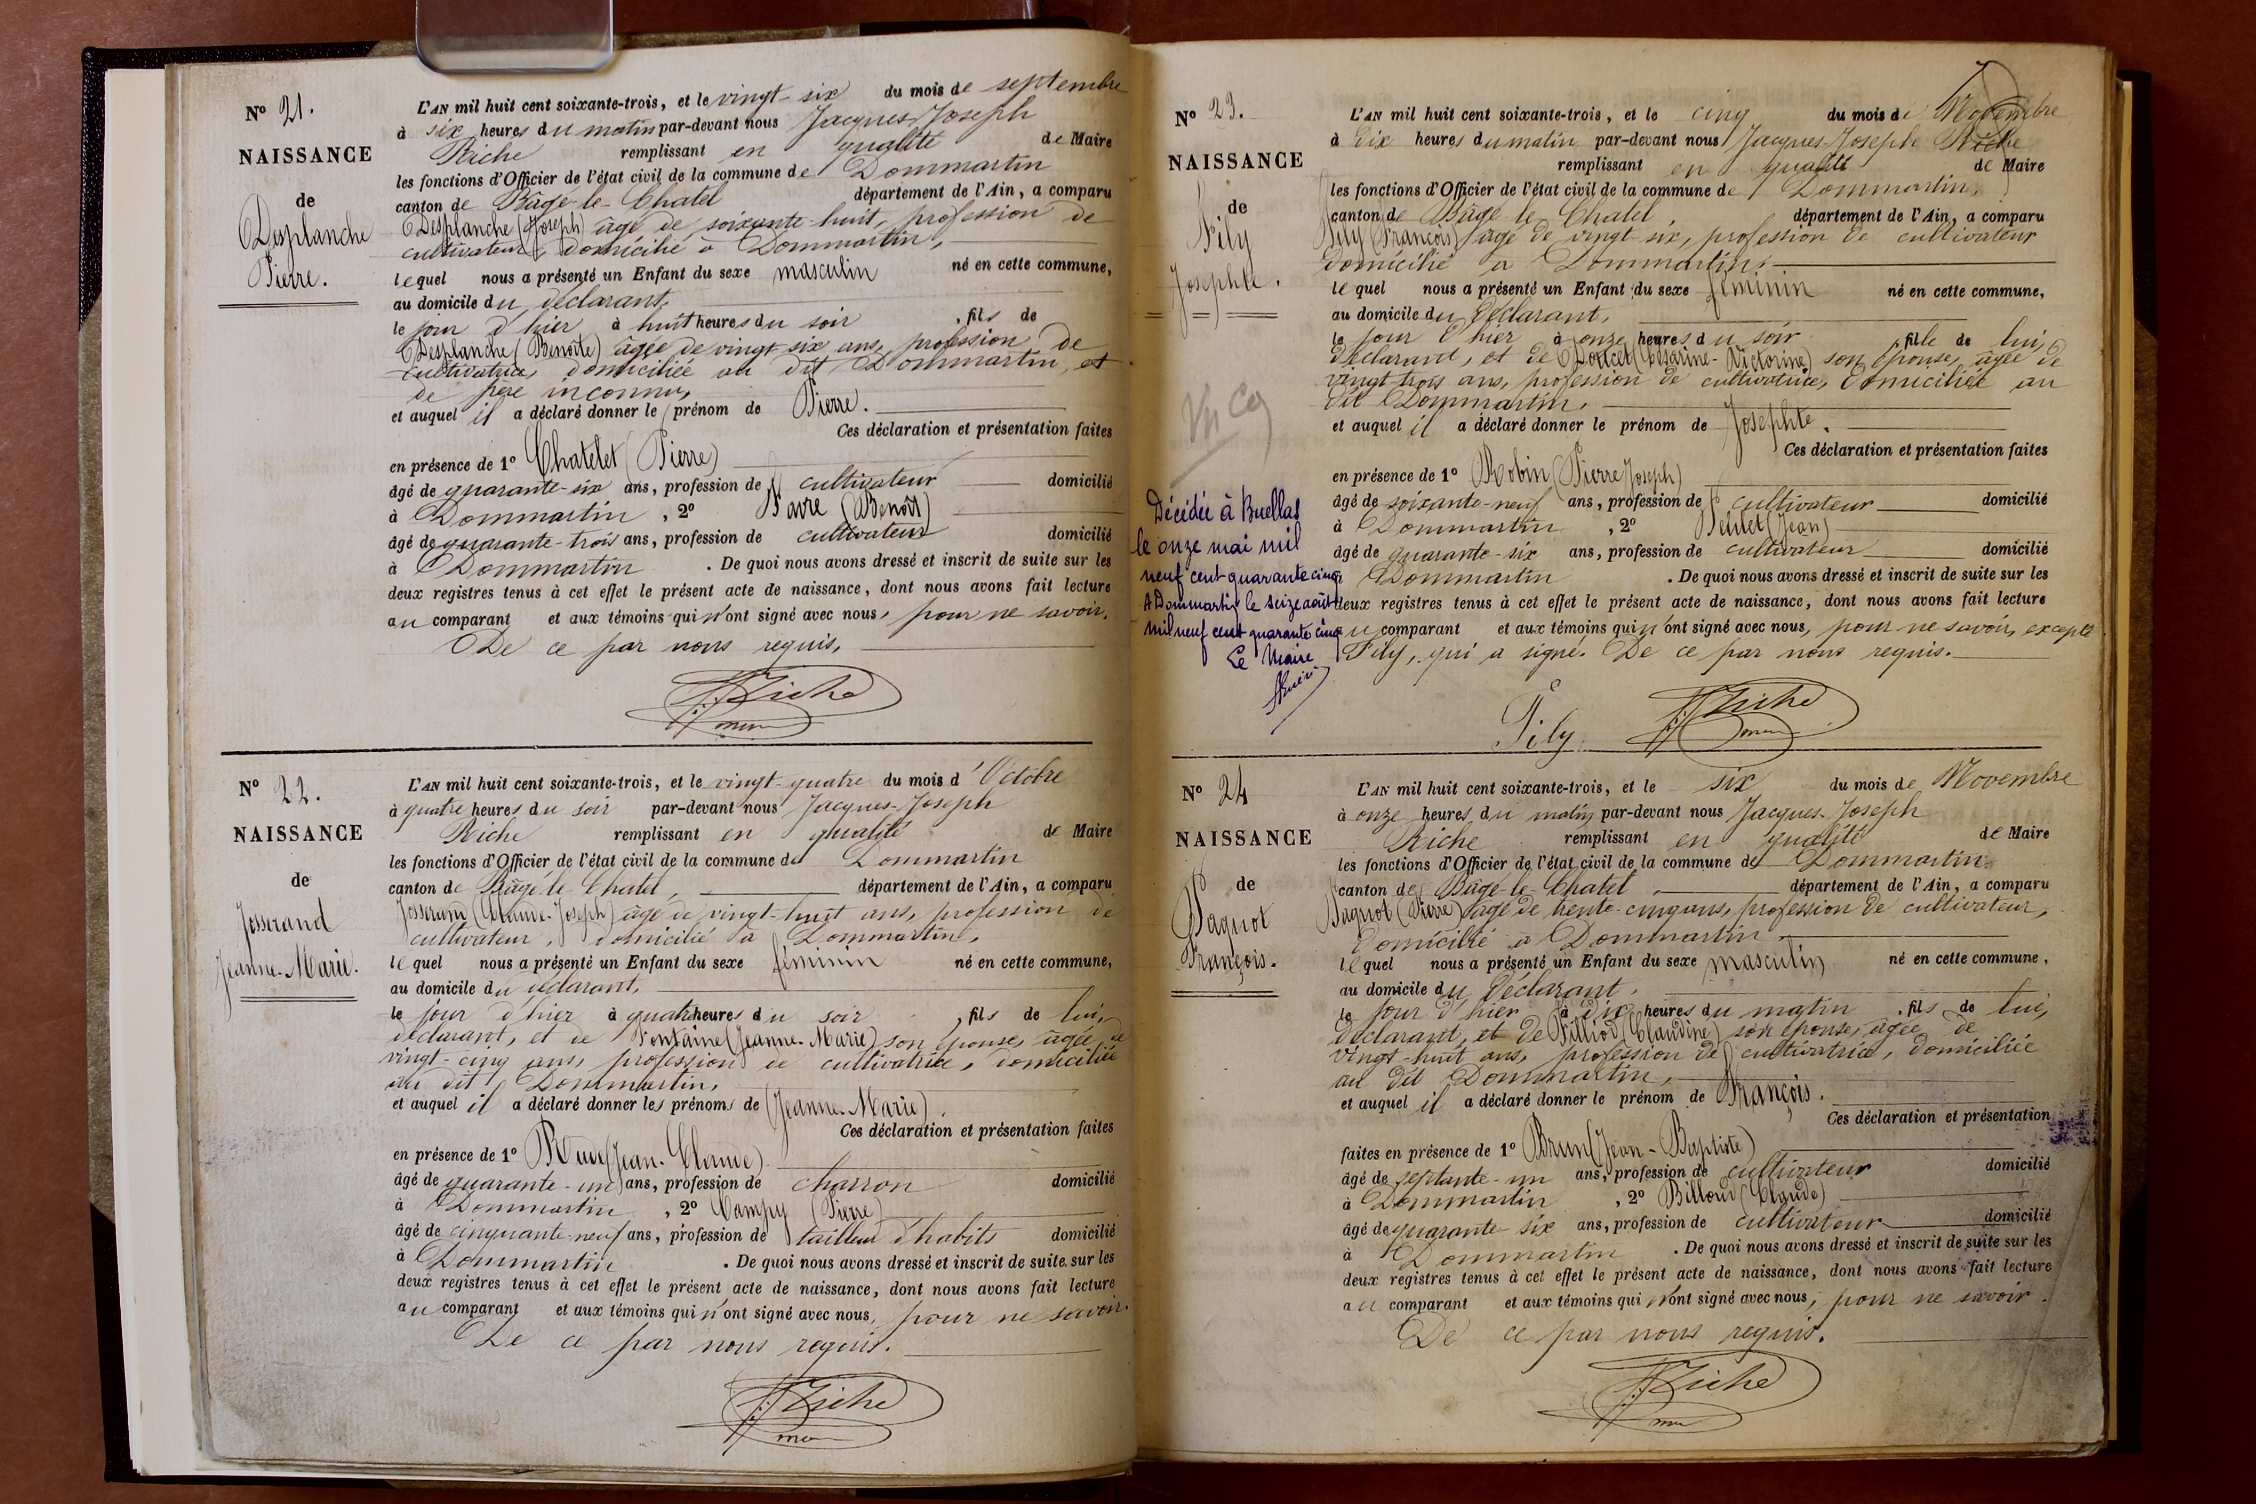 N° 21.
NAISSANCE
de
Desplanche
Pierre.
L'AN mil huit cent soixante-trois, et le vingt-six du mois de septembre
à six heures du matin par-devant nous Jacques-Joseph
Riche remplissant en qualité de Maire
les fonctions d'Officier de l'état civil de la commune de Dommartin
canton de Bâgé-le-Chatel département de l'Ain, a comparu
Desplanche (Joseph) âgé de soixante-huit, profession de
cultivateur, domicilié à Dommartin,
lequel nous a présenté un Enfant du sexe masculin né en cette commune,
au domicile du déclarant,
le jour d'hier à huit heures du soir, fils de
Desplanche (Benoite) âgée de vingt six ans, profession de
cultivatrice, domiciliée au dit Dommartin, et
de père inconnu,
et auquel il a déclaré donner le prénom de Pierre.
Ces déclaration et présentation faites
en présence de 1° Chatelet (Pierre)
âgé de quarante-six ans, profession de cultivateur domicilié
à Dommartin, 2° Favre (Benoît)
âgé de quarante-trois ans, profession de cultivateur domicilié
à Dommartin. De quoi nous avons dressé et inscrit de suite sur les
deux registres tenus à cet effet le présent acte de naissance, dont nous avons fait lecture
au comparant et aux témoins qui n'ont signé avec nous, pour ne savoir,
De ce par nous requis.
J. Riche
N° 22.
NAISSANCE
de
Josserand
Jeanne-Marie.
L'AN mil huit cent soixante-trois, et le vingt-quatre du mois d'Octobre
à quatre heures du soir par-devant nous Jacques-Joseph
Riche remplissant en qualité de Maire
les fonctions d'Officier de l'état civil de la commune de Dommartin
canton de Bâgé-le-Chatel, département de l'Ain, a comparu
Josserand (Claude-Joseph) âgé de vingt-huit ans, profession de
cultivateur, domicilié à Dommartin,
lequel nous a présenté un Enfant du sexe féminin né en cette commune,
au domicile du déclarant,
le jour d'hier à quatre heures du soir, fils de lui,
déclarant, et de Fontaine (Jeanne-Marie) son épouse, âgée de
vingt-cinq ans, profession de cultivatrice, domiciliée
au dit Dommartin,
et auquel il a déclaré donner les prénoms de (Jeanne-Marie).
Ces déclaration et présentation faites
en présence de 1° (Jean-Claude)
âgé de quarante-un ans, profession de charron domicilié
à Dommartin, 2° Campy (Pierre)
âgé de cinquante-neuf ans, profession de tailleur d'habits domicilié
à Dommartin. De quoi nous avons dressé et inscrit de suite sur les
deux registres tenus à cet effet le présent acte de naissance, dont nous avons fait lecture
au comparant et aux témoins qui n'ont signé avec nous, pour ne savoir.
De ce par nous requis.
J. Riche
N° 23.
NAISSANCE
de
Fily
Josephte.
Décédée à Buellas
le onze mai mil
neuf cent quarante cinq
A Dommartin le seize août
mil neuf cent quarante cinq
Le Maire
L'AN mil huit cent soixante-trois, et le cinq du mois de Novembre
à dix heures du matin par-devant nous Jacques-Joseph Riche
remplissant en qualité de Maire
les fonctions d'Officier de l'état civil de la commune de Dommartin,
canton de Bâgé-le-Chatel, département de l'Ain, a comparu
Fily (François) âgé de vingt-six, profession de cultivateur
domicilié à Dommartin,
lequel nous a présenté un Enfant du sexe féminin né en cette commune,
au domicile du déclarant,
le jour d'hier à onze heures du soir, fille de lui,
déclarant, et de (Césarine-Victorine) son épouse, âgée de
vingt-trois ans, profession de cultivatrice, domiciliée au
dit Dommartin,
et auquel il a déclaré donner le prénom de Josephte.
Ces déclaration et présentation faites
en présence de 1° Robin (Pierre Joseph)
âgé de soixante-neuf ans, profession de cultivateur domicilié
à Dommartin, 2° (Jean)
âgé de quarante-six ans, profession de cultivateur domicilié
Dommartin. De quoi nous avons dressé et inscrit de suite sur les
deux registres tenus à cet effet le présent acte de naissance, dont nous avons fait lecture
au comparant et aux témoins qui n'ont signé avec nous, pour ne savoir, excepté
Fily, qui a signé. De ce par nous requis.
Fily J. Riche
N° 24
NAISSANCE
de
Paquot
François.
L'AN mil huit cent soixante-trois, et le six du mois de Novembre
à onze heures du matin par-devant nous Jacques-Joseph
Riche remplissant en qualité de Maire
les fonctions d'Officier de l'état civil de la commune de Dommartin
canton de Bâgé-le-Chatel département de l'Ain, a comparu
Paquot (Pierre) âgé de trente-cinq ans, profession de cultivateur,
domicilié à Dommartin
lequel nous a présenté un Enfant du sexe masculin né en cette commune,
au domicile du déclarant,
le jour d'hier à dix heures du matin, fils de lui,
déclarant, et de Filliod (Claudine) son épouse, âgée de
vingt-huit ans, profession de cultivatrice, domiciliée
au dit Dommartin,
et auquel il a déclaré donner le prénom de François.
Ces déclaration et présentation
faites en présence de 1° Brun (Jean-Baptiste)
âgé de septante-un ans, profession de cultivateur domicilié
à Dommartin, 2° Billoud (Claude)
âgé de quarante six ans, profession de cultivateur domicilié
à Dommartin. De quoi nous avons dressé et inscrit de suite sur les
deux registres tenus à cet effet le présent acte de naissance, dont nous avons fait lecture
au comparant et aux témoins qui n'ont signé avec nous, pour ne savoir.
De ce par nous requis.
J. Riche